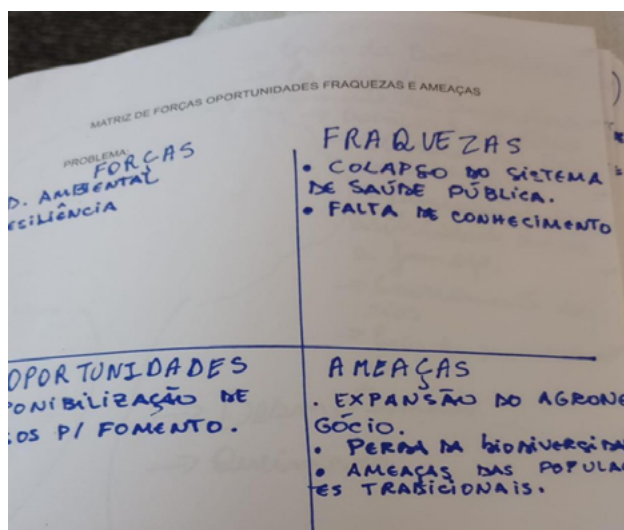 MATRIZ DE FORÇAS OPORTUNIDADES FRAQUEZAS E AMEAÇAS
PROBLEMA:
FORÇAS
D. AMBIENTAL
ESILIÊNCIA
FRAQUEZAS
• COLAPSO DO SISTEMA
DE SAÚDE PÚBLICA.
• FALTA DE CONHECIMENTO
OPORTUNIDADES
PONIBILIZAÇÃO DE
SOS P/ FOMENTO.
AMEAÇAS
. EXPANSÃO DO AGRONE
GÓCIO.
• PERDA DA BIODIVERSIDA
• AMEAÇAS DAS POPULAÇ
ES TRADICIONAIS.